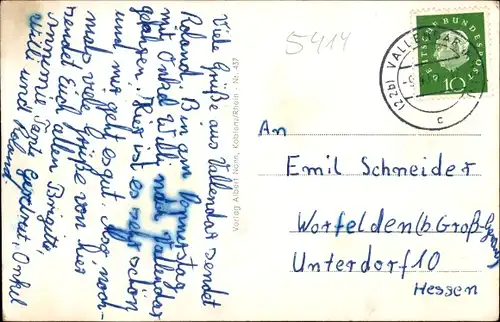 Viele Grüße aus Vallendar sendet
Roland. Bin am
mit Onkel Willi nach Vallendar
gefahren. Hier ist es sehr schön
und mir geht es gut. Also noch-
mals viele Grüße von hier
sendet Euch allen Brigitte
Tante Gertrud, Onkel
Willi und Roland
Verlag Albert Nonn, Koblenz/Rhein · Nr. 457
5414
DEUTSCHE BUNDESPOST
10
(22b) VALLENDAR
c
An
Emil Schneider
Worfelden (b. Groß-Gerau)
Unterdorf 10
Hessen